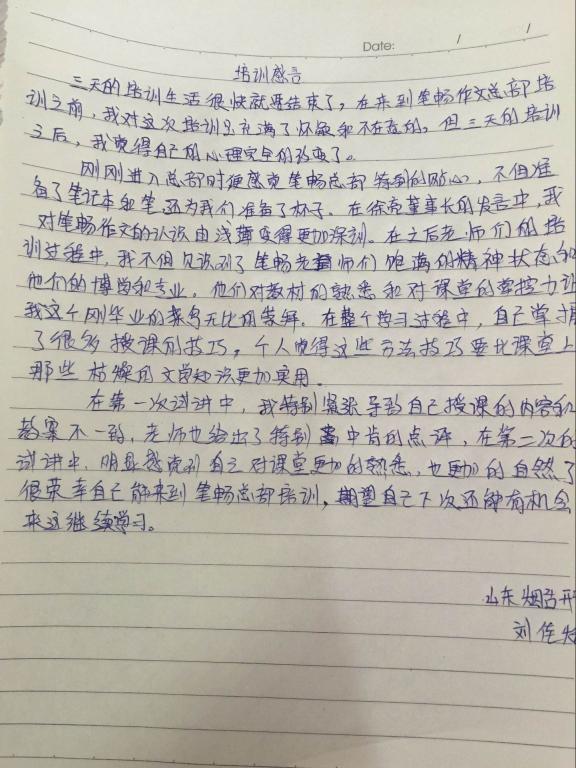 Date: / /
培训感言
三天的培训生活很快就要结束了，在来到笔畅作文总部培
训之前，我对这次培训是充满了怀疑和不在意的，但三天的培训
之后，我觉得自己的心理完全的改变了。
刚刚进入总部时便感觉笔畅总部特别的贴心，不但准
备了笔记本和笔还为我们准备了杯子。在徐亮董事长的发言中，我
对笔畅作文的认识由浅薄变得更加深刻。在之后老师们的培
训过程中，我不但见识到了笔畅老师们饱满的精神状态和
他们的博学和专业。他们对教材的熟悉和对课堂的掌控力让
我这个刚毕业的菜鸟无比的崇拜。在整个学习过程中，自己学习
了很多授课的技巧，个人觉得这些方法技巧要比课堂上
那些枯燥的文学知识更加实用。
在第一次试讲中，我特别紧张导致自己授课的内容和
教案不一致，老师也给出了特别中肯的点评，在第二次的
试讲中，明显感觉到自己对课堂更加的熟悉，也更加的自然了
很荣幸自己能来到笔畅总部培训，期望自己下次还能有机会
来这继续学习。
山东烟台
刘佳